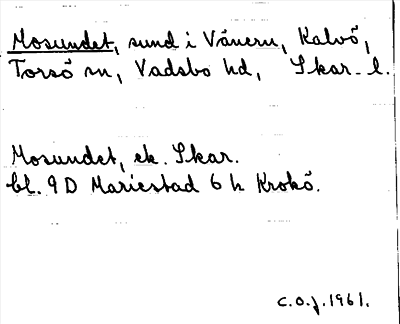 Mosundet, sund i Vänern, Kalvö,
Torsö sn, Vadsbo hd, Skar. l.
Mosundet, ek. Skar.
bl. 9D Mariestad 6 h Krokö.
c.o.j. 1961.